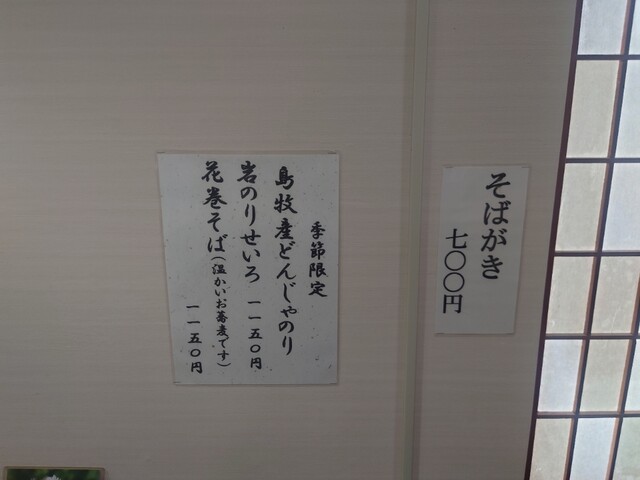 そばがき
七〇〇円
季節限定
島牧産どんじゃのり
岩のりせいろ 一一五〇円
花巻そば(温かいお蕎麦です) 一一五〇円